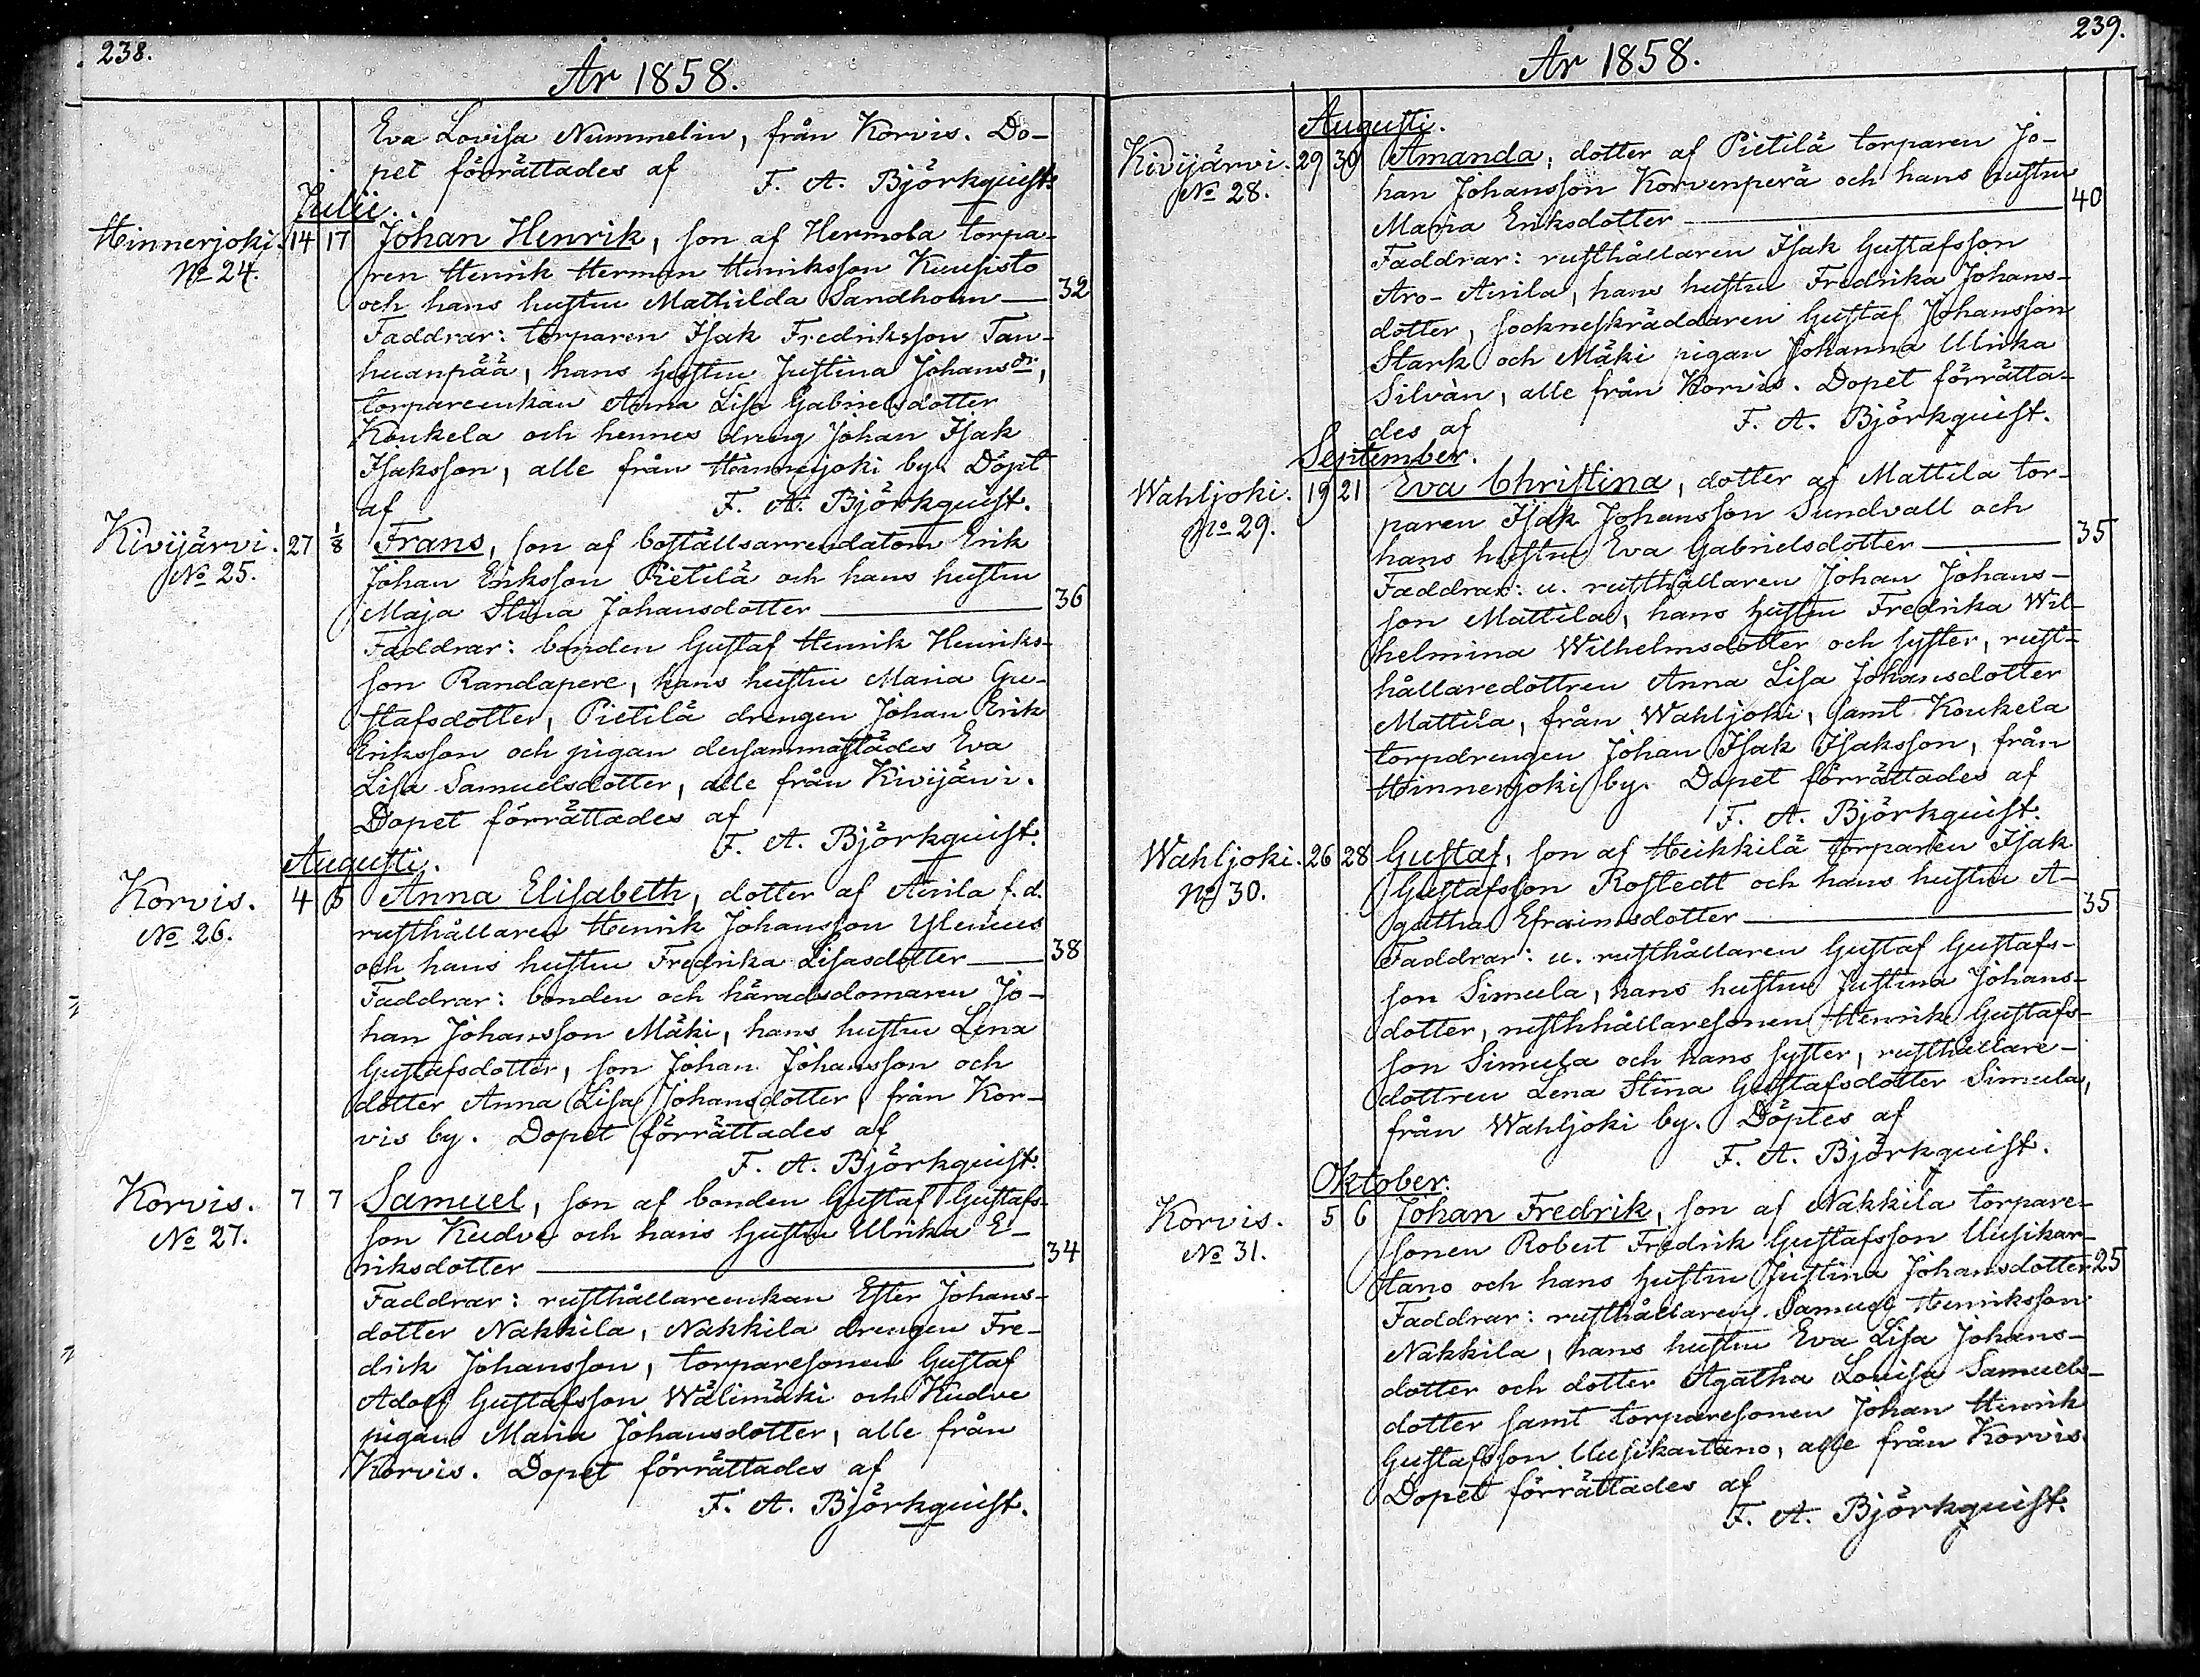 238.
År 1858.
Eva Lovisa Nummelin, från Korvis. Do-
pet förrättades af
F. A. Björkquist.
Julii.
Hinnerjoki. 14 17 Johan Henrik, son af Hermola torpa-
N:o 24.
ren Henrik Herman Henriksson Kuusisto
och hans hustru Mathilda Sandholm — 32
Faddrar: torparen Isak Fredriksson Tan-
huanpää, hans hustru Justina Johansdr,
torpareenkan Anna Lisa Gabrielsdotter
Koukela och hennes dreng Johan Isak
Isaksson, alle från Hinnerjoki by. Döpt
af F. A. Björkquist.
Kivijärvi. 27 1/8 Frans, son af boställsarrendatorn Erik
N:o 25.
Johan Eriksson Pietilä och hans hustru
Maja Stina Johansdotter — 36
Faddrar: bonden Gustaf Henrik Henriks-
son Randapere, hans hustru Maria Gu-
stafsdotter, Pietilä drengen Johan Erik
Eriksson och pigan dersammastädes Eva
Lisa Samuelsdotter, alle från Kivijärvi.
Dopet förrättades af
F. A. Björkquist.
Augusti.
Korvis. 4 5 Anna Elisabeth, dotter af Anila f.d.
N:o 26.
rusthållaren Henrik Johansson Ylenius
och hans hustru Fredrika Lisasdotter — 38
Faddrar: bonden och häradsdomaren Jo-
han Johansson Mäki, hans hustru Lena
Gustafsdotter, son Johan Johansson och
dotter Anna Lisa Johansdotter, från Kor-
vis by. Dopet förrättades af
F. A. Björkquist.
Korvis. 7 7 Samuel, son af bonden Gustaf Gustafs-
N:o 27.
son Kudve och hans hustru Ulrika E-
riksdotter — 34
Faddrar: rusthållareenkan Ester Johans-
dotter Nakkila, Nakkila drengen Fre-
drik Johansson, torparesonen Gustaf
Adolf Gustafsson Wälimäki och Kudve
pigan Maria Johansdotter, alle från
Korvis. Dopet förrättades af
F. A. Björkquist.
239.
År 1858.
Augusti.
Kivijärvi. 29 30 Amanda, dotter af Pietilä torparen Jo-
N:o 28.
han Johansson Korvenperä och hans hustru
Maria Eriksdotter — 40
Faddrar: rusthållaren Isak Gustafsson
Aro-Anila, hans hustru Fredrika Johans-
dotter, sockneskräddaren Gustaf Johansson
Stark och Mäki pigan Johanna Ulrika
Silvàn, alle från Korvis. Dopet förrätta-
des af F. A. Björkquist.
September.
Wahljoki. 19 21 Eva Christina, dotter af Mattila tor-
N:o 29.
paren Isak Johansson Sundvall och
hans hustru Eva Gabrielsdotter — 35
Faddrar: u. rusthållaren Johan Johans-
son Mattila, hans hustru Fredrika Wil-
helmina Wilhelmsdotter och syster, rust-
hållaredottren Anna Lisa Johansdotter
Mattila, från Wahljoki, samt Koukela
torpdrengen Johan Isak Isaksson, från
Hinnerjoki by. Dopet förrättades af
F. A. Björkquist.
Wahljoki. 26 28 Gustaf, son af Heikkilä torparen Isak
N:o 30.
Gustafsson Rostedt och hans hustru A-
gatha Efraimsdotter — 35
Faddrar: u. rusthållaren Gustaf Gustafs-
son Simula, hans hustru Justina Johans-
dotter, rusthhållaresonen Henrik Gustafs-
son Simula och hans syster, rusthållare-
dottren Lena Stina Gustafsdotter Simula,
från Wahljoki by. Döptes af
F. A. Björkquist.
Oktober.
Korvis. 5 6 Johan Fredrik, son af Nakkila torpare-
N:o 31.
sonen Robert Fredrik Gustafsson Uusikar-
tano och hans hustru Justina Johansdotter 25
Faddrar: rusthållaren Samuel Henriksson
Nakkila, hans hustru Eva Lisa Johans-
dotter och dotter Agatha Lovisa Samuels-
dotter samt torparesonen Johan Henrik
Gustafsson Uusikartano, alle från Korvis.
Dopet förrättades af
F. A. Björkquist.